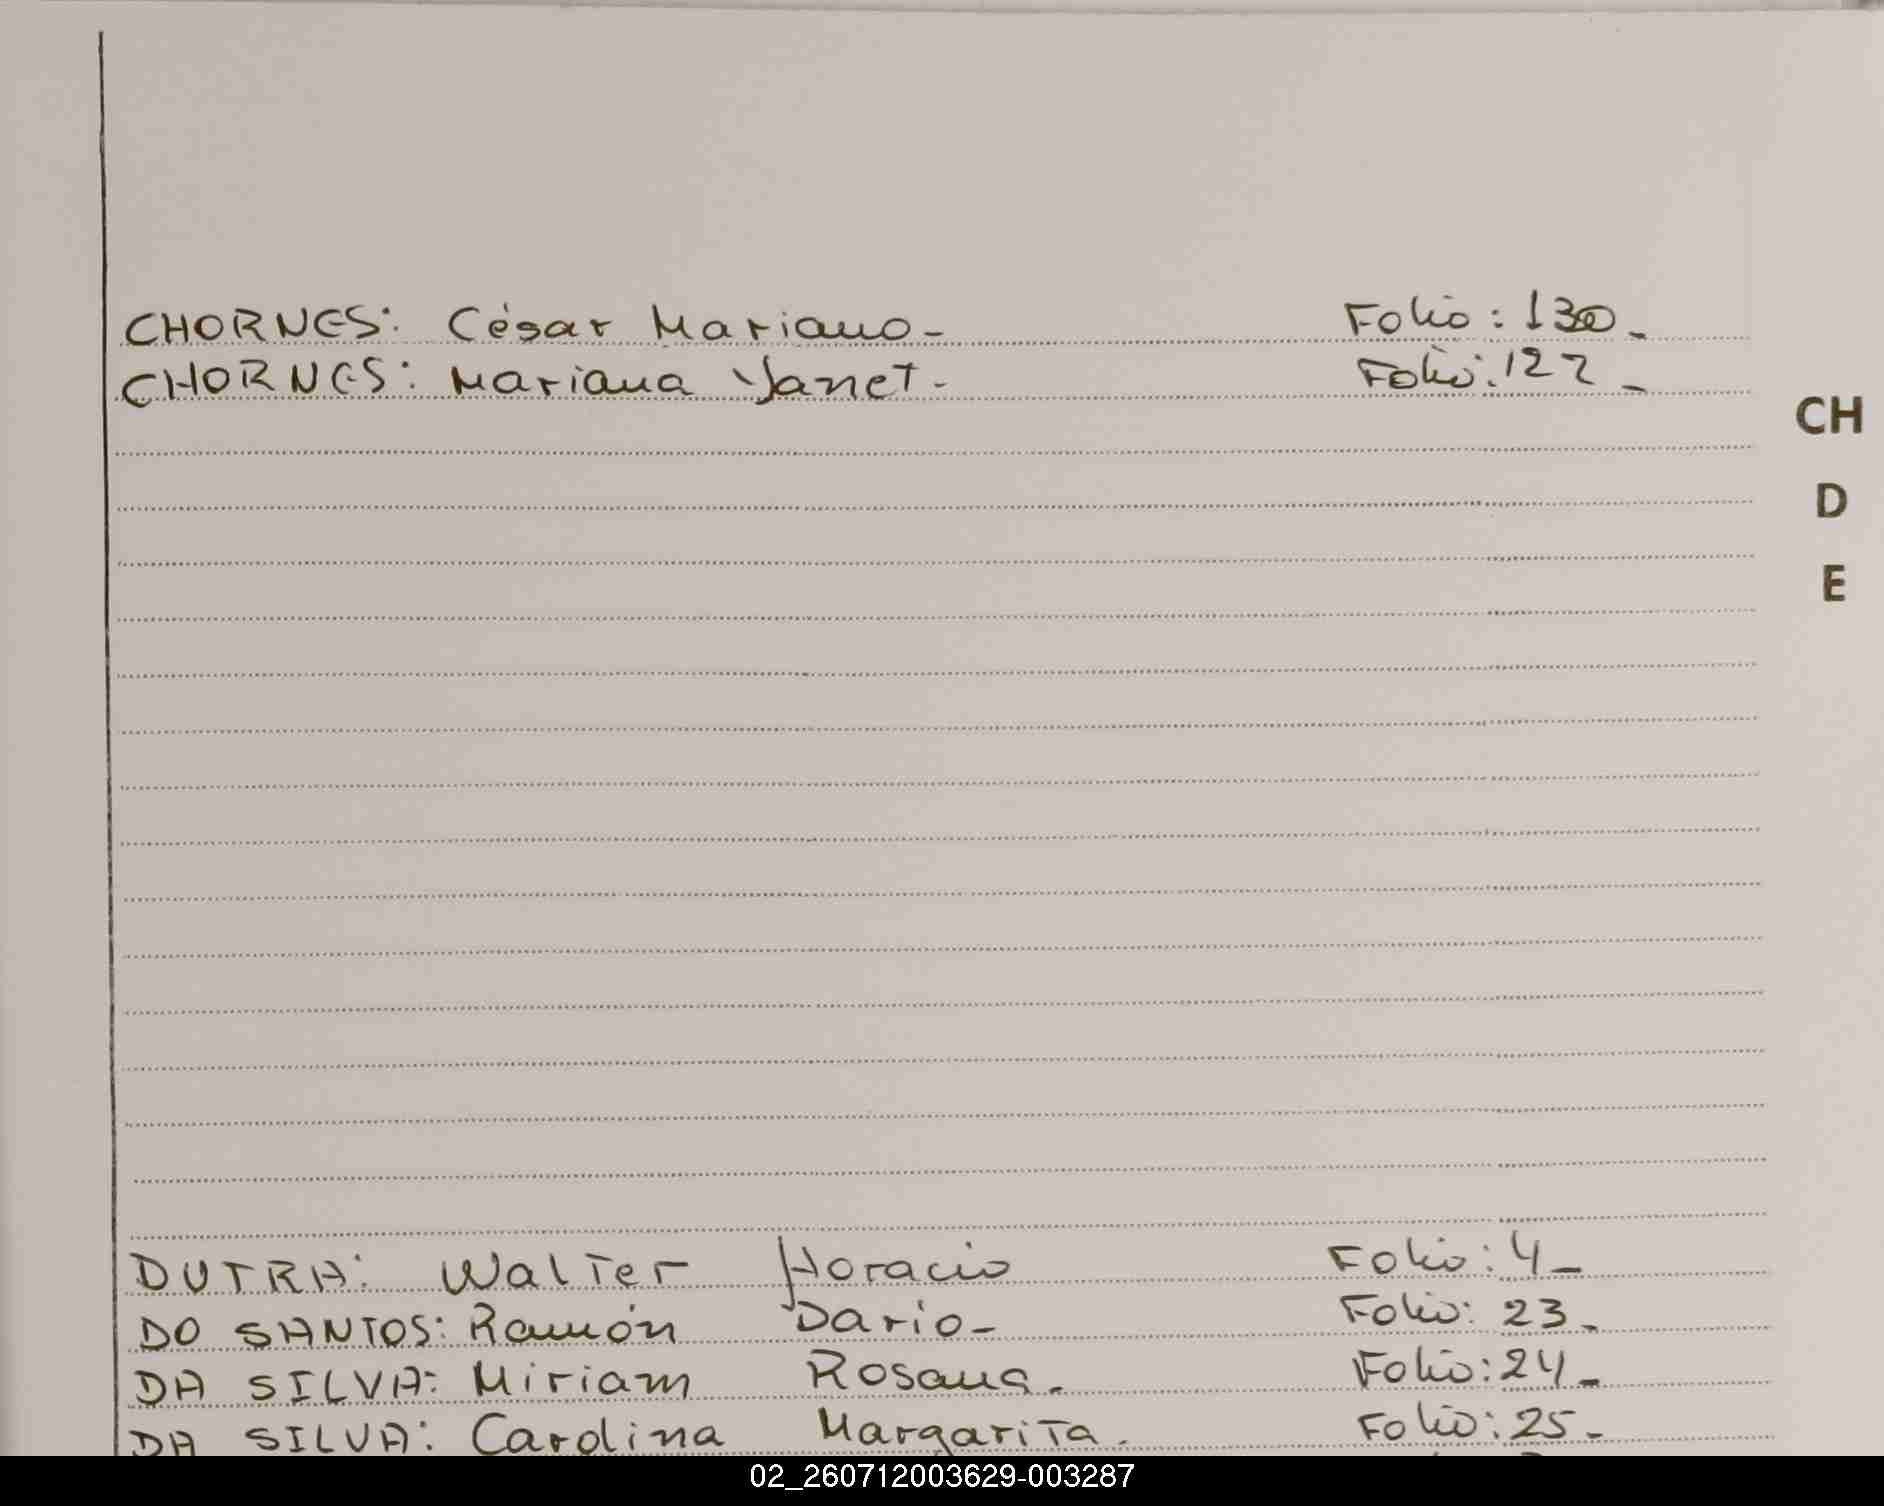 CHORNES: César Mariano- Folio: 130-
CHORNES: Mariana Yanet- Folio: 122-
CH
D
E
DUTRA: Walter Horacio Folio: 4-
DO SANTOS: Ramón Dario- Folio: 23-
DA SILVA: Miriam Rosana. Folio: 24-
DA SILVA: Carolina Margarita. Folio: 25-
02_260712003629-003287